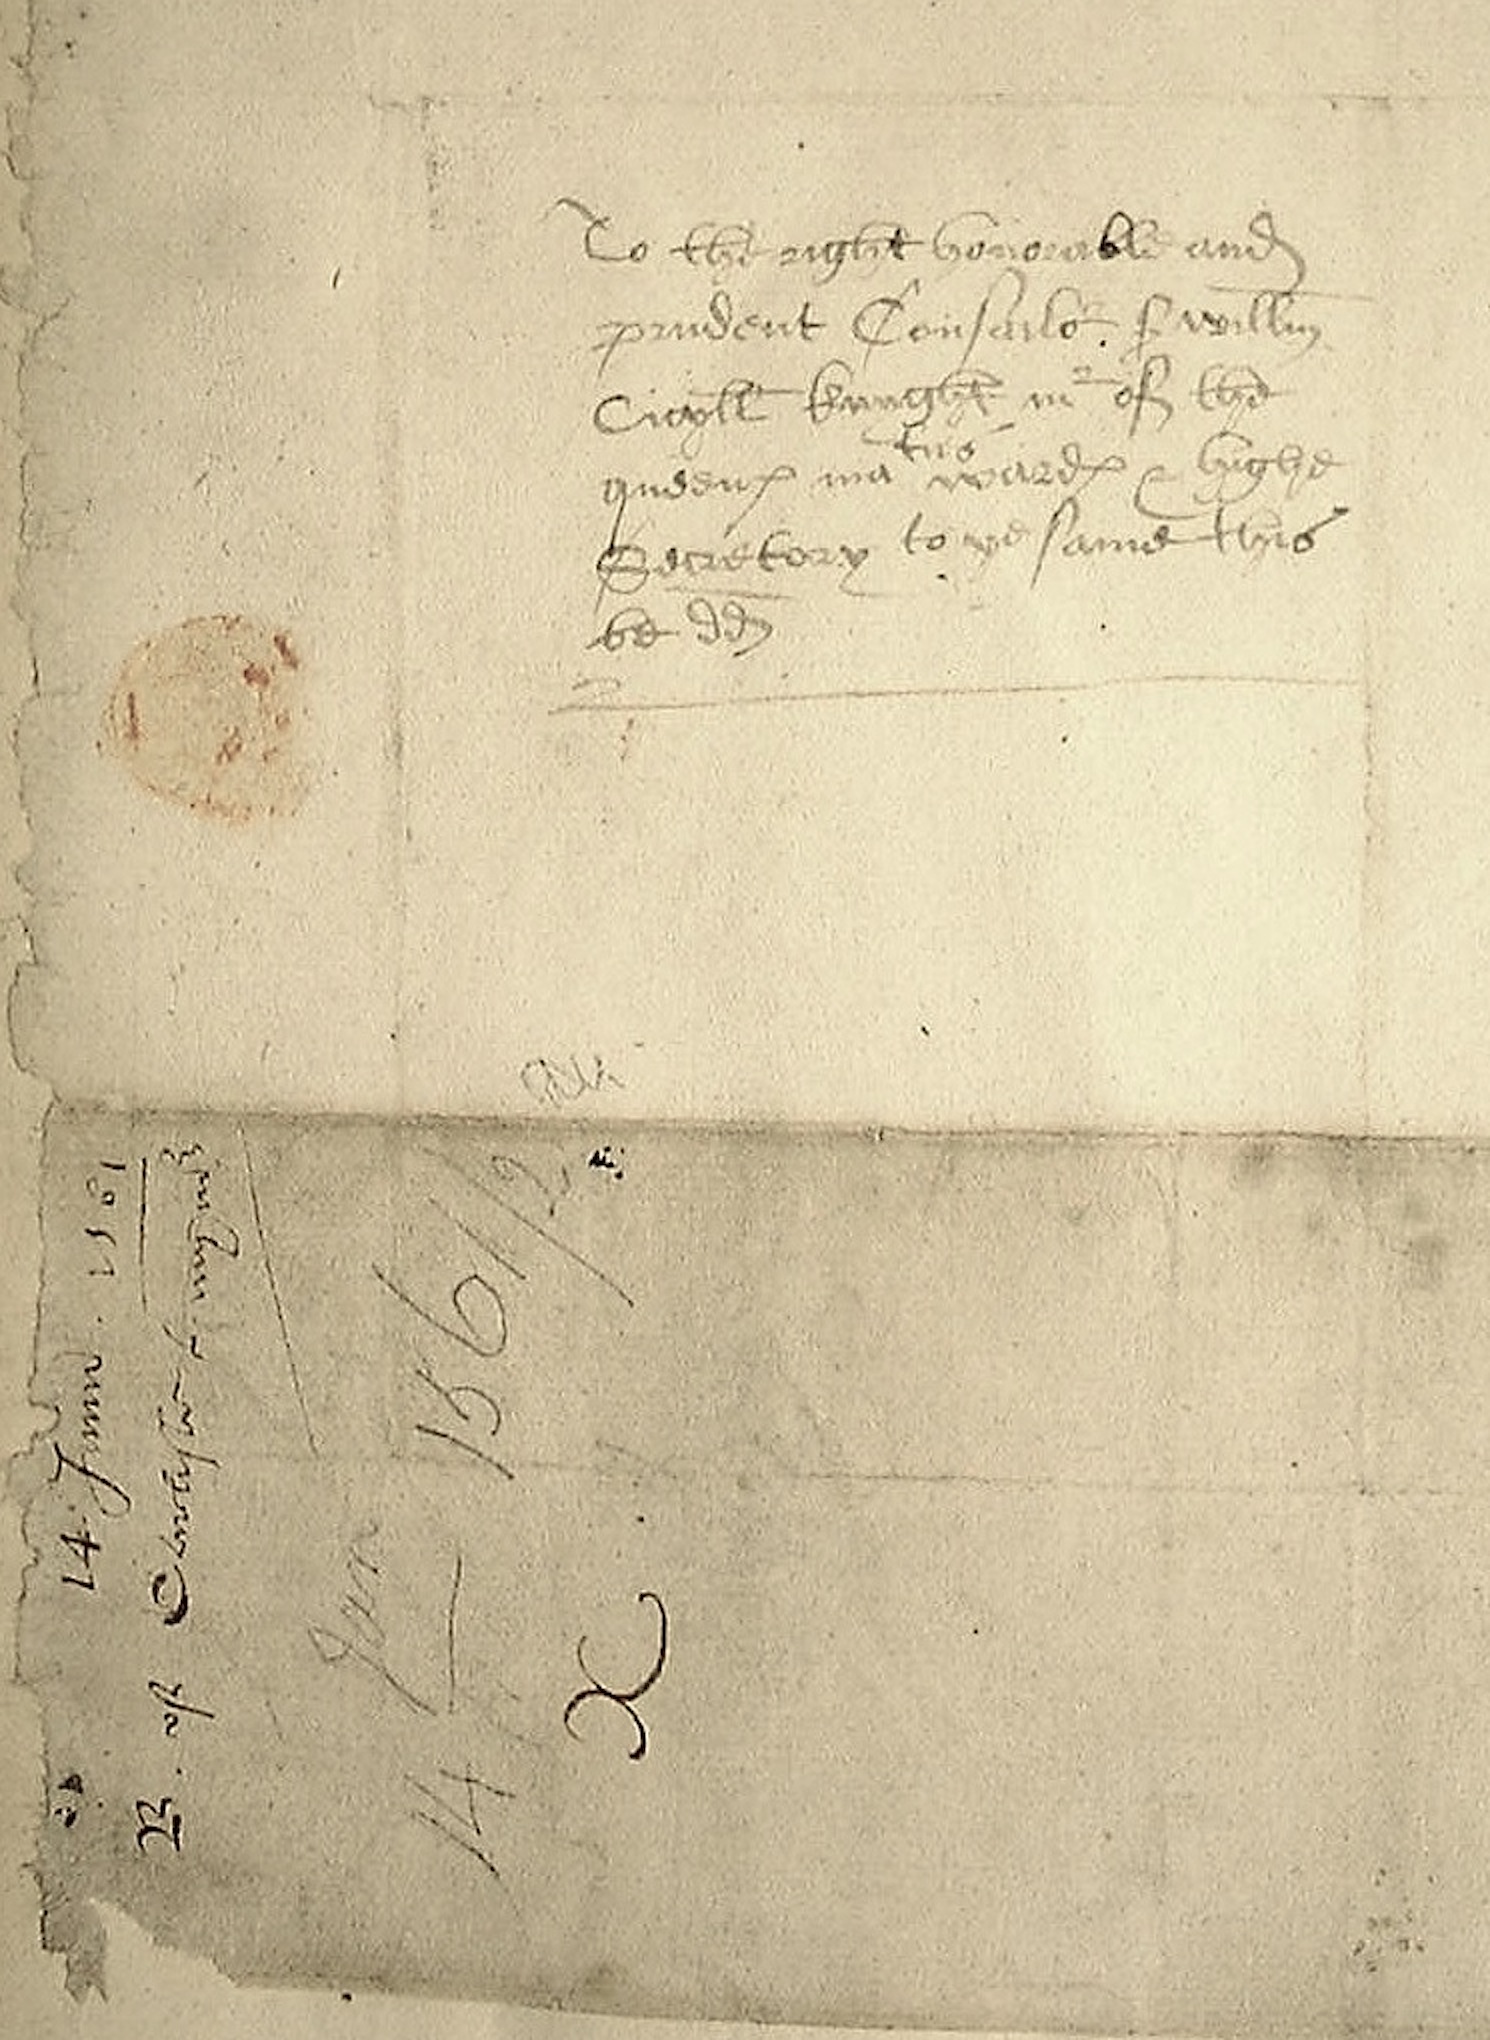 To the right honorable and
prudent Consailor. sr willm
Cicyll knyght mr of the
quenes maties wardes & highe
Secretory to ye same this
be dd
14 Junii . 1561
B. of Chester
14 Jan 1561/2